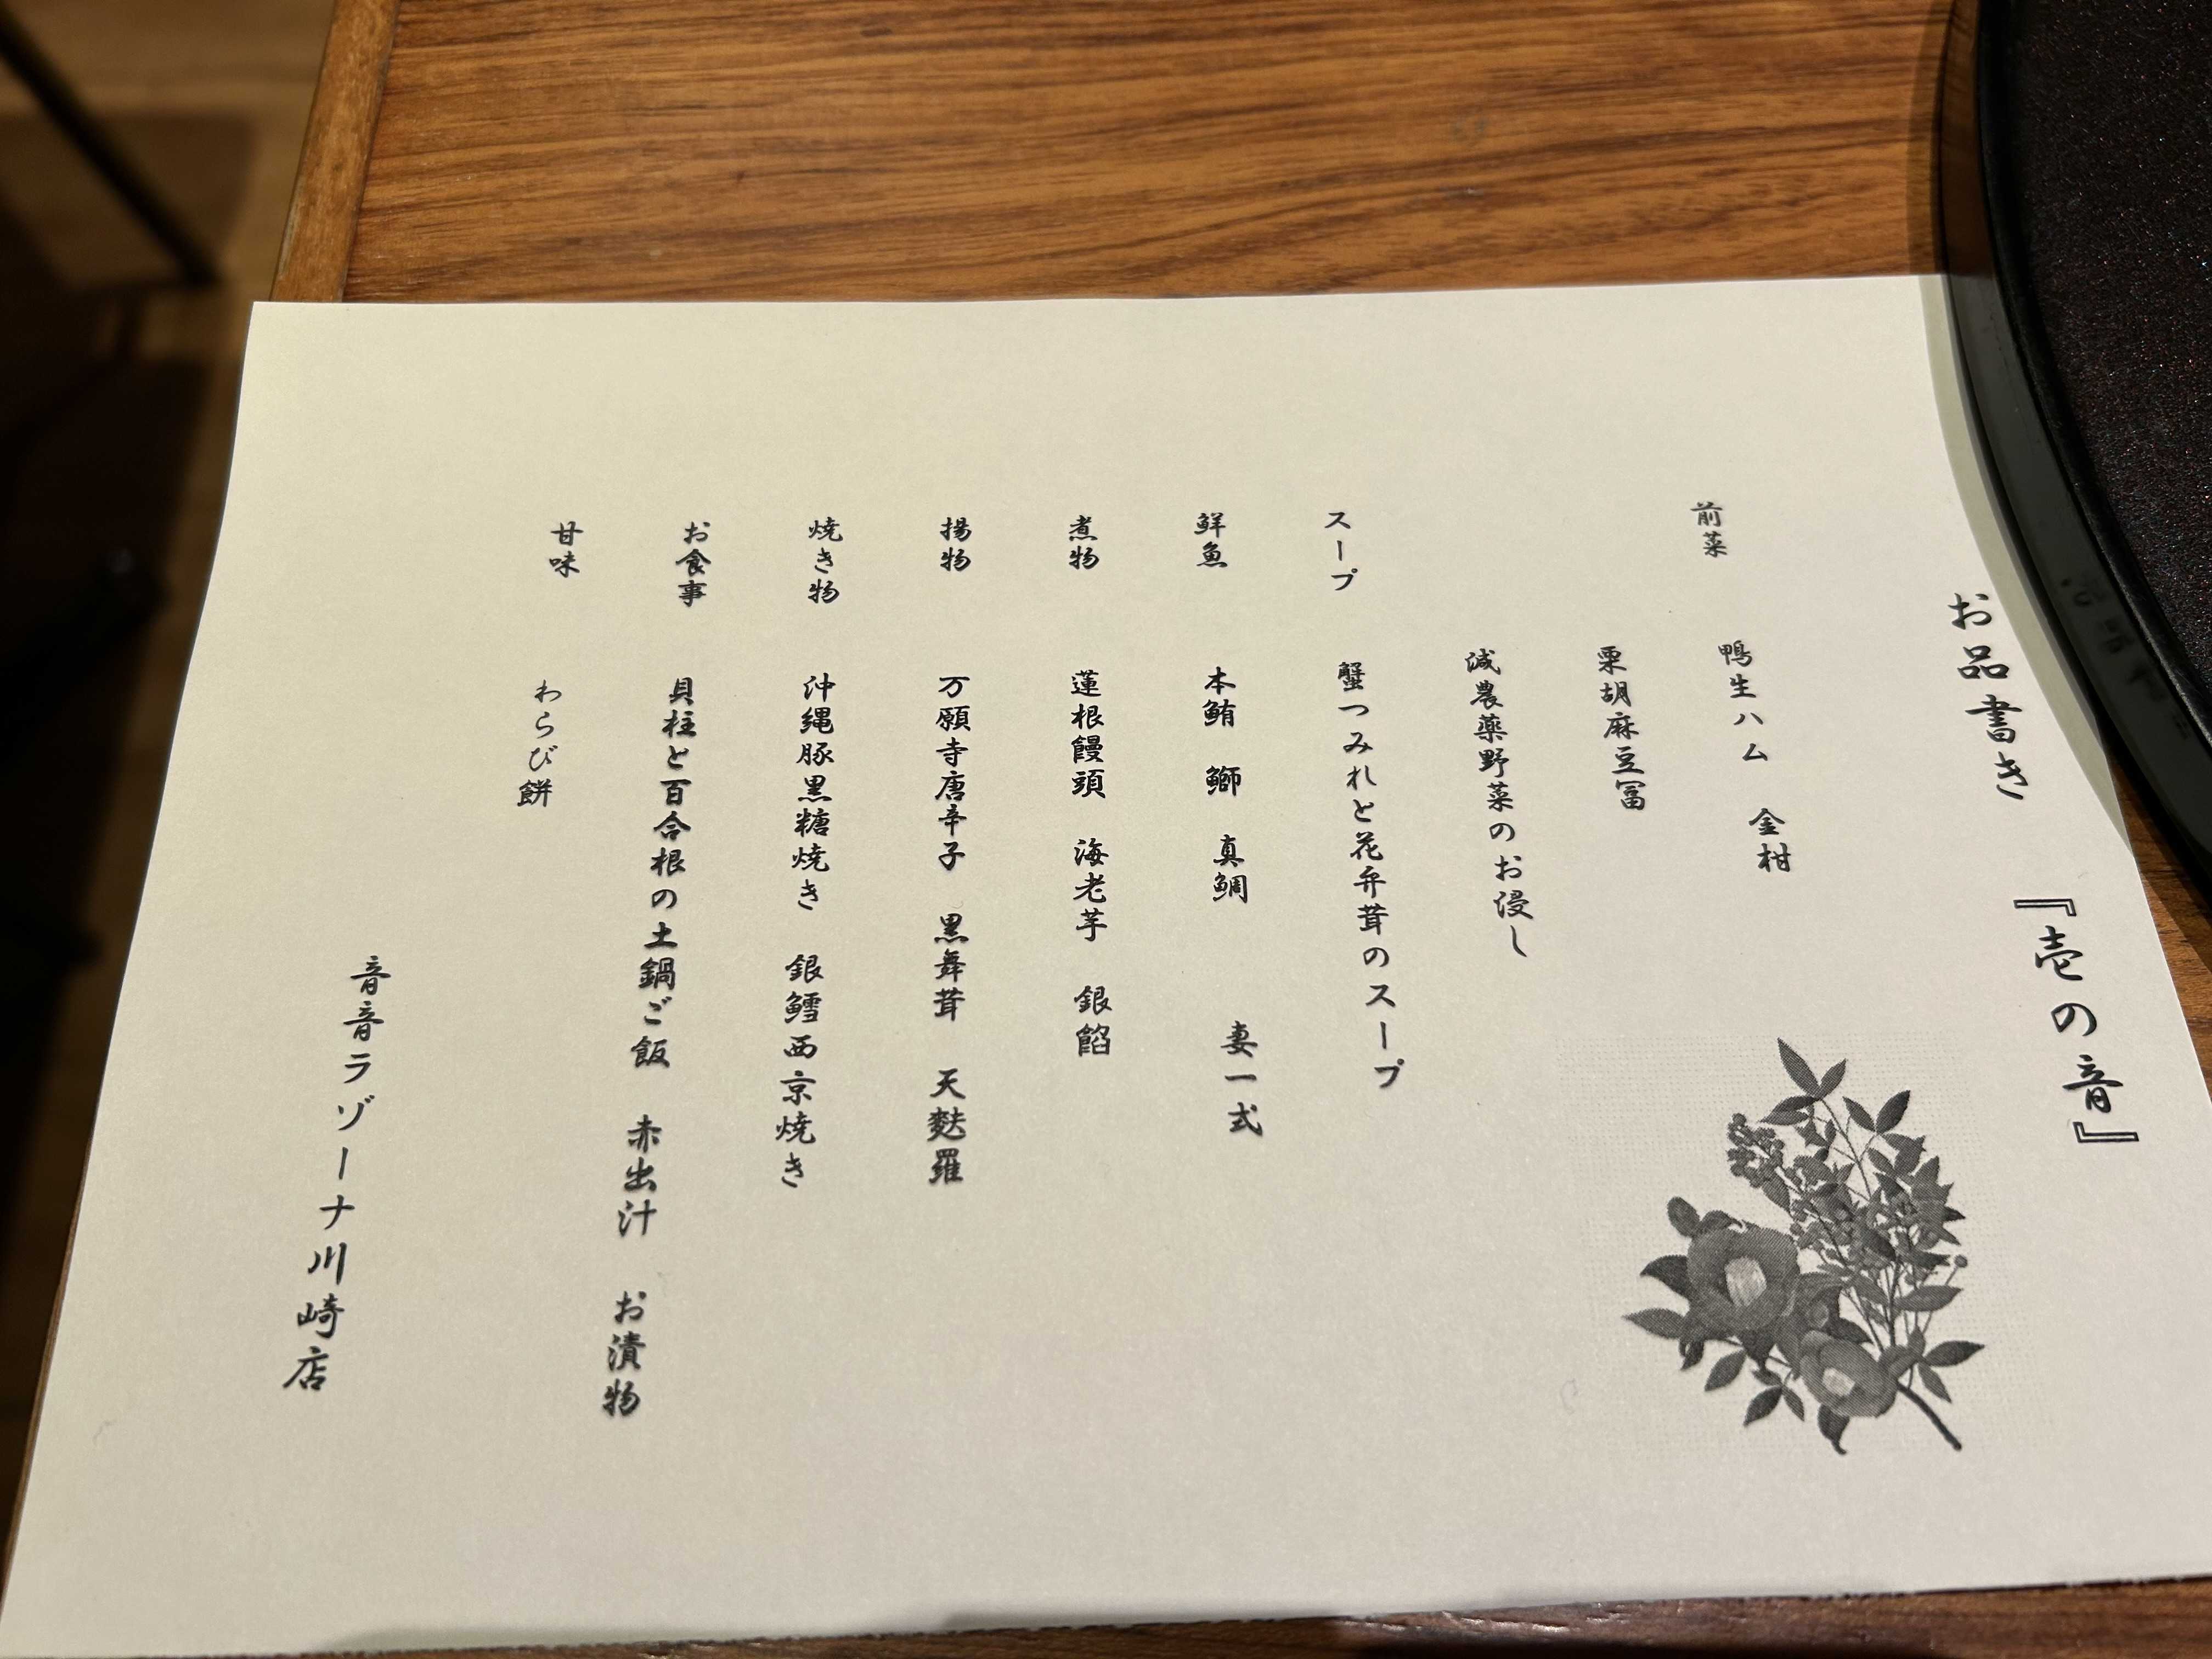 お品書き 『壱の音』
前菜 鴨生ハム 金柑
栗胡麻豆冨
減農薬野菜のお浸し
スープ 蟹つみれと花弁茸のスープ
鮮魚 本鮪 鰤 真鯛 妻一式
煮物 蓮根饅頭 海老芋 銀餡
揚物 万願寺唐辛子 黒舞茸 天麩羅
焼き物 沖縄豚黒糖焼き 銀鱈西京焼き
お食事 貝柱と百合根の土鍋ご飯 赤出汁 お漬物
甘味 わらび餅
音音ラゾーナ川崎店